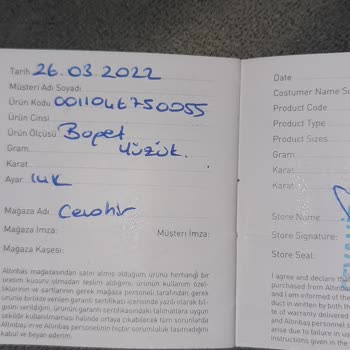 Tarih 26.03.2022
Müsteri Adı Soyadı
Ürün Kodu 0011046750055
Ürün Cinsi
Ürün Ölçüsü Bopet
Gram Yüzük.
Karat
Ayar 14K
Mağaza Adı Cevahir
Mağaza İmza: Müşteri İmza:
Mağaza Kaşesi:
Altınbaş mağazasından satın almış olduğum ürünü herhangi bir
üretim kusuru olmadan teslim aldığımı, ürünün kullanım özel-
liklerinin ve şartlarının gerek mağaza personeli tarafından gerek
ürünle birlikte verilen garanti sertifikası içerisinde yazılı olarak bil-
gisini verildiğini, ürünün garanti sertifikasındaki talimatlara uygun
şekilde kullanılmaması halinde ortaya çıkabilecek tüm sorunlarda
Altınbaş'ın ve Altınbaş personelinin hiçbir sorumluluk taşımadığını
kabul ve beyan ederim.
Date
Costumer Name S
Product Code
Product Type
Product Sizes
Gram
Karat
Karat
Store Name
Store Signature:
Store Seal:
I agree and declare th
purchased from Altınb
and I am informed of the
duct in written by both th
te of warranty delivered
and Altınbaş personnel s
arise due to failure in us
instructions given in the